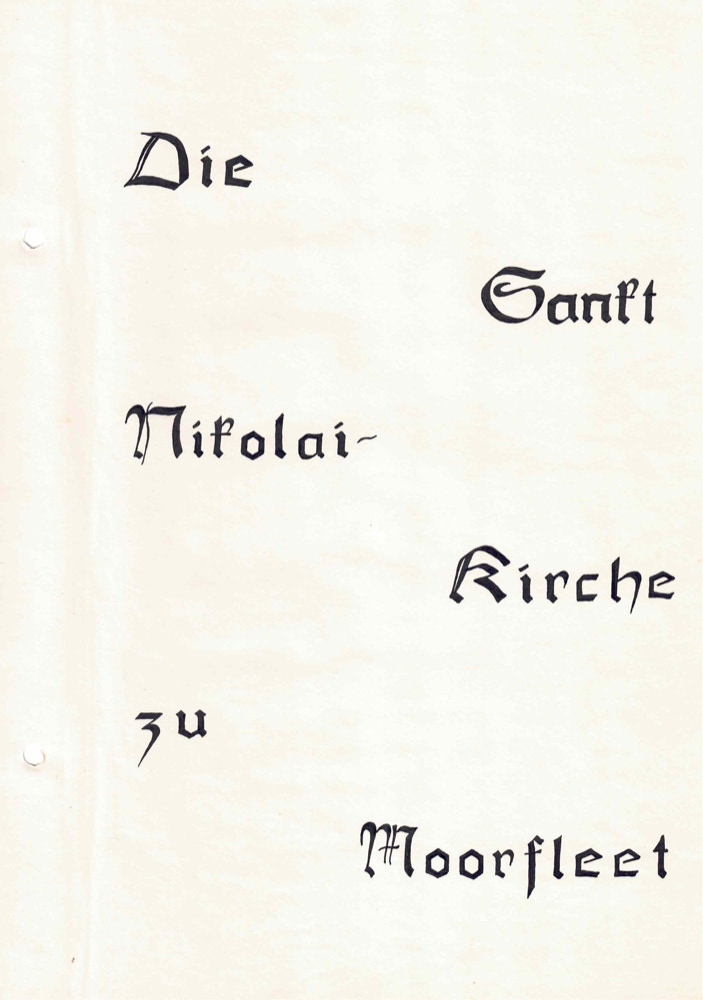 Die
Sankt
Nikolai-
Kirche
zu
Moorfleet